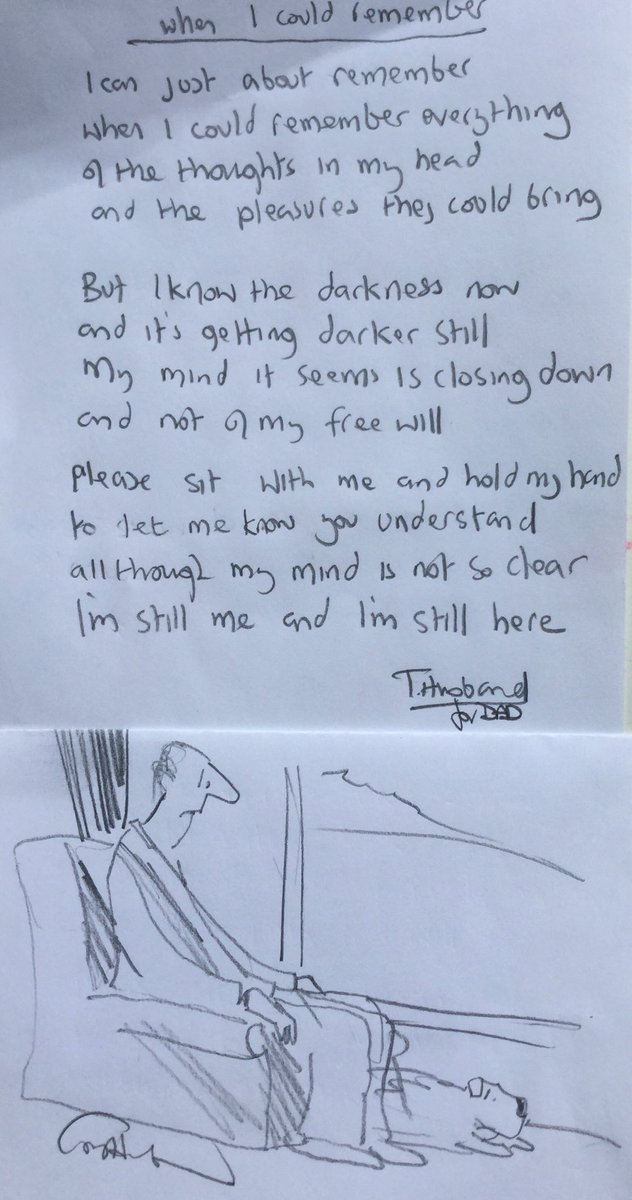 when I could remember
I can just about remember
when I could remember everything
of the thoughts in my head
and the pleasures they could bring
But I know the darkness now
and it's getting darker still
My mind it seems is closing down
and not of my free will
please sit with me and hold my hand
to let me know you understand
allthough my mind is not so clear
I'm still me and I'm still here
T.Husband
for DAD